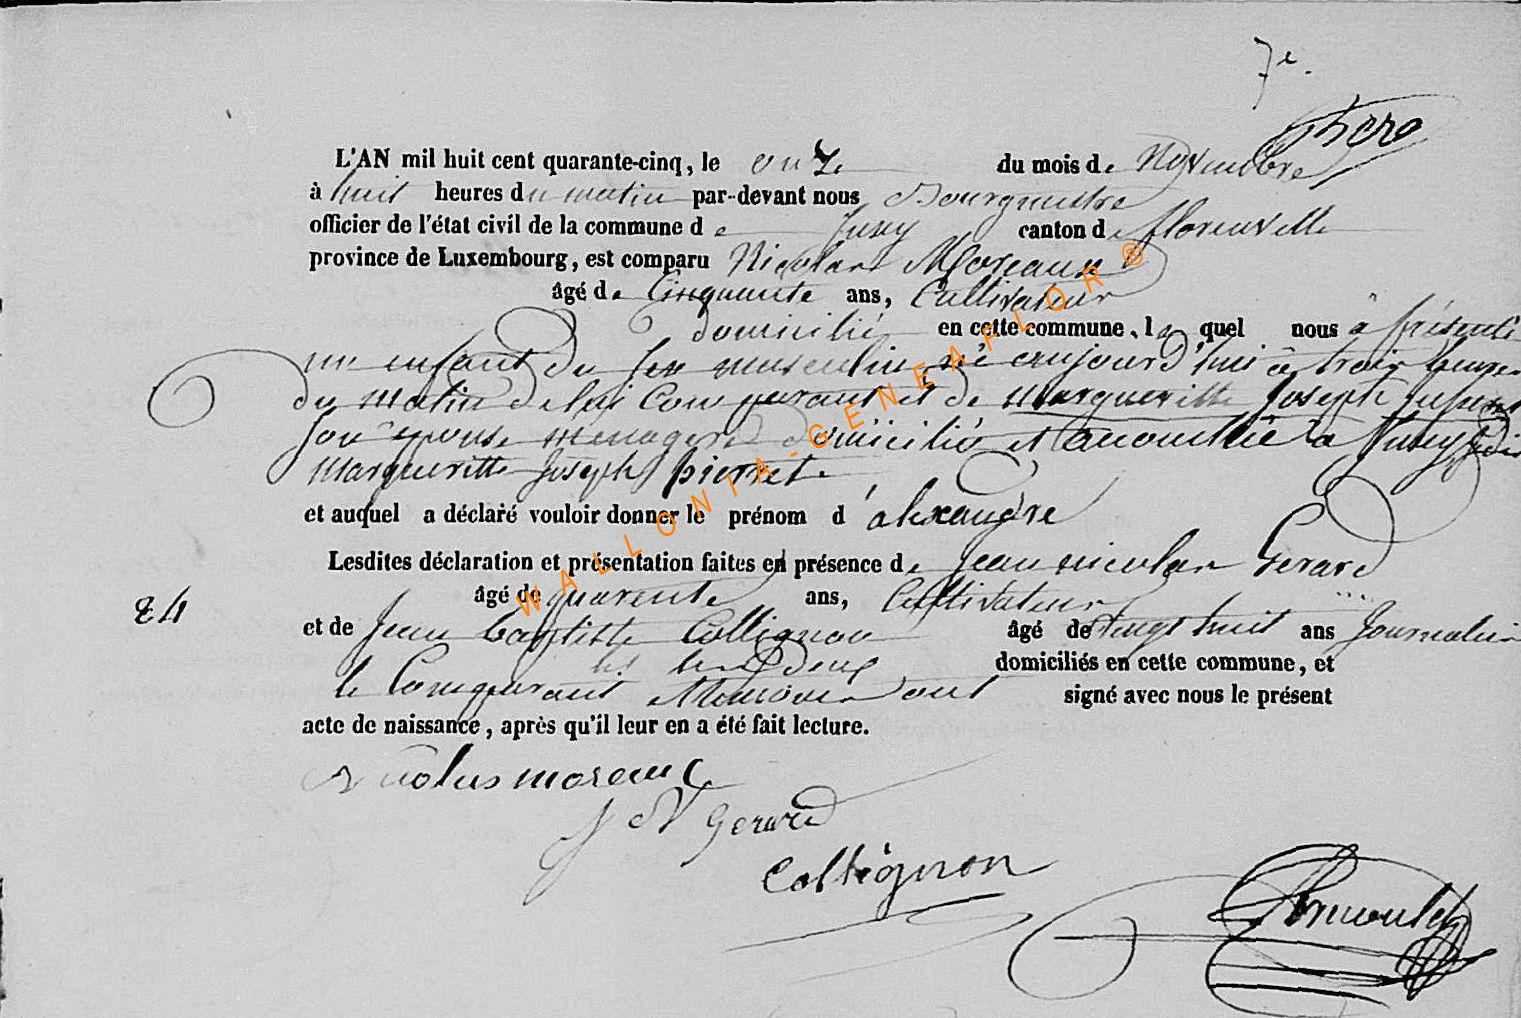 7e.
L'AN mil huit cent quarante-cinq, le onze du mois de Novembre
à huit heures du matin par-devant nous Bourgmestre
officier de l'état civil de la commune de Jusey canton de florenville
province de Luxembourg, est comparu Nicolas Moreaux
âgé de Cinquante ans, Cultivateur
domicilié en cette commune, lequel nous à présenté
un enfant du sex masculin né aujourd'hui à trois heures
du matin de lui Comparant et de Margueritte Joseph
son épouse menagere domiciliée et accouchée à Jusey
Margueritte Joseph pierret.
et auquel a déclaré vouloir donner le prénom d'alexandre
Lesdites déclaration et présentation faites en présence de Jean nicolas Gerard
âgé de quarente ans, Cultivateur
84
et de Jean baptiste Collignon âgé de vingt huit ans Journalier
les deux domiciliés en cette commune, et
le Comparant temoins ont signé avec nous le présent
acte de naissance, après qu'il leur en a été fait lecture.
Nicolas moreaux
J N Gerard
Collignon
WALLONIA-GENEAFLOR®